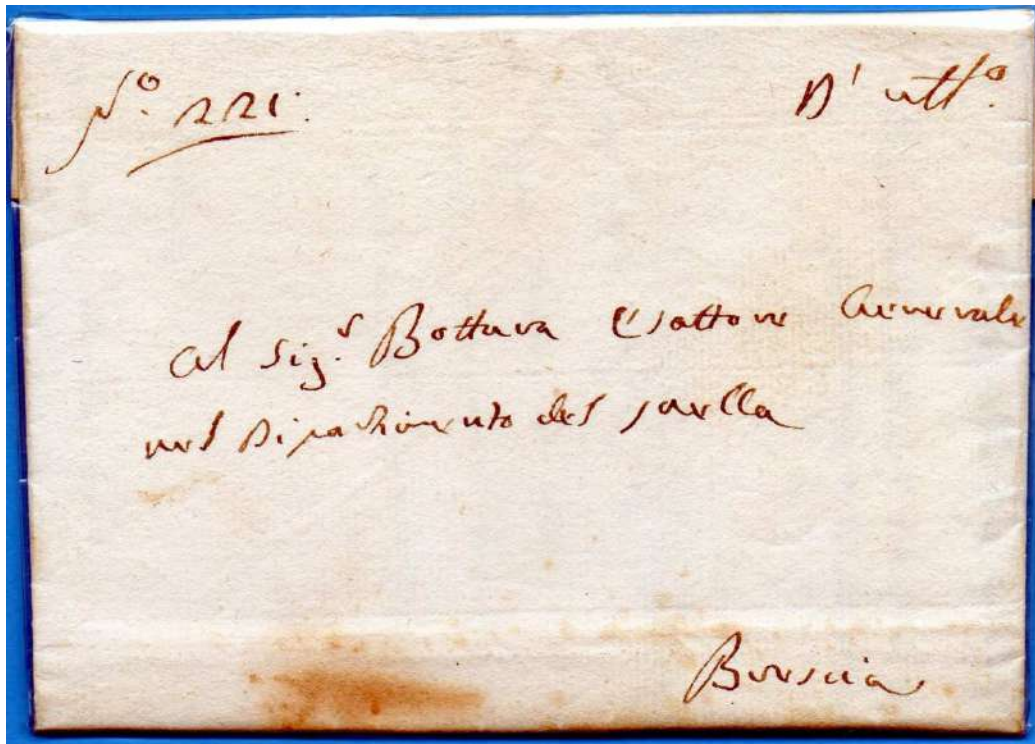 N.º 221:
D' uff.º
Al Sig.r Bottura Esattore Generale
nel Dipartimento del Mella
Brescia